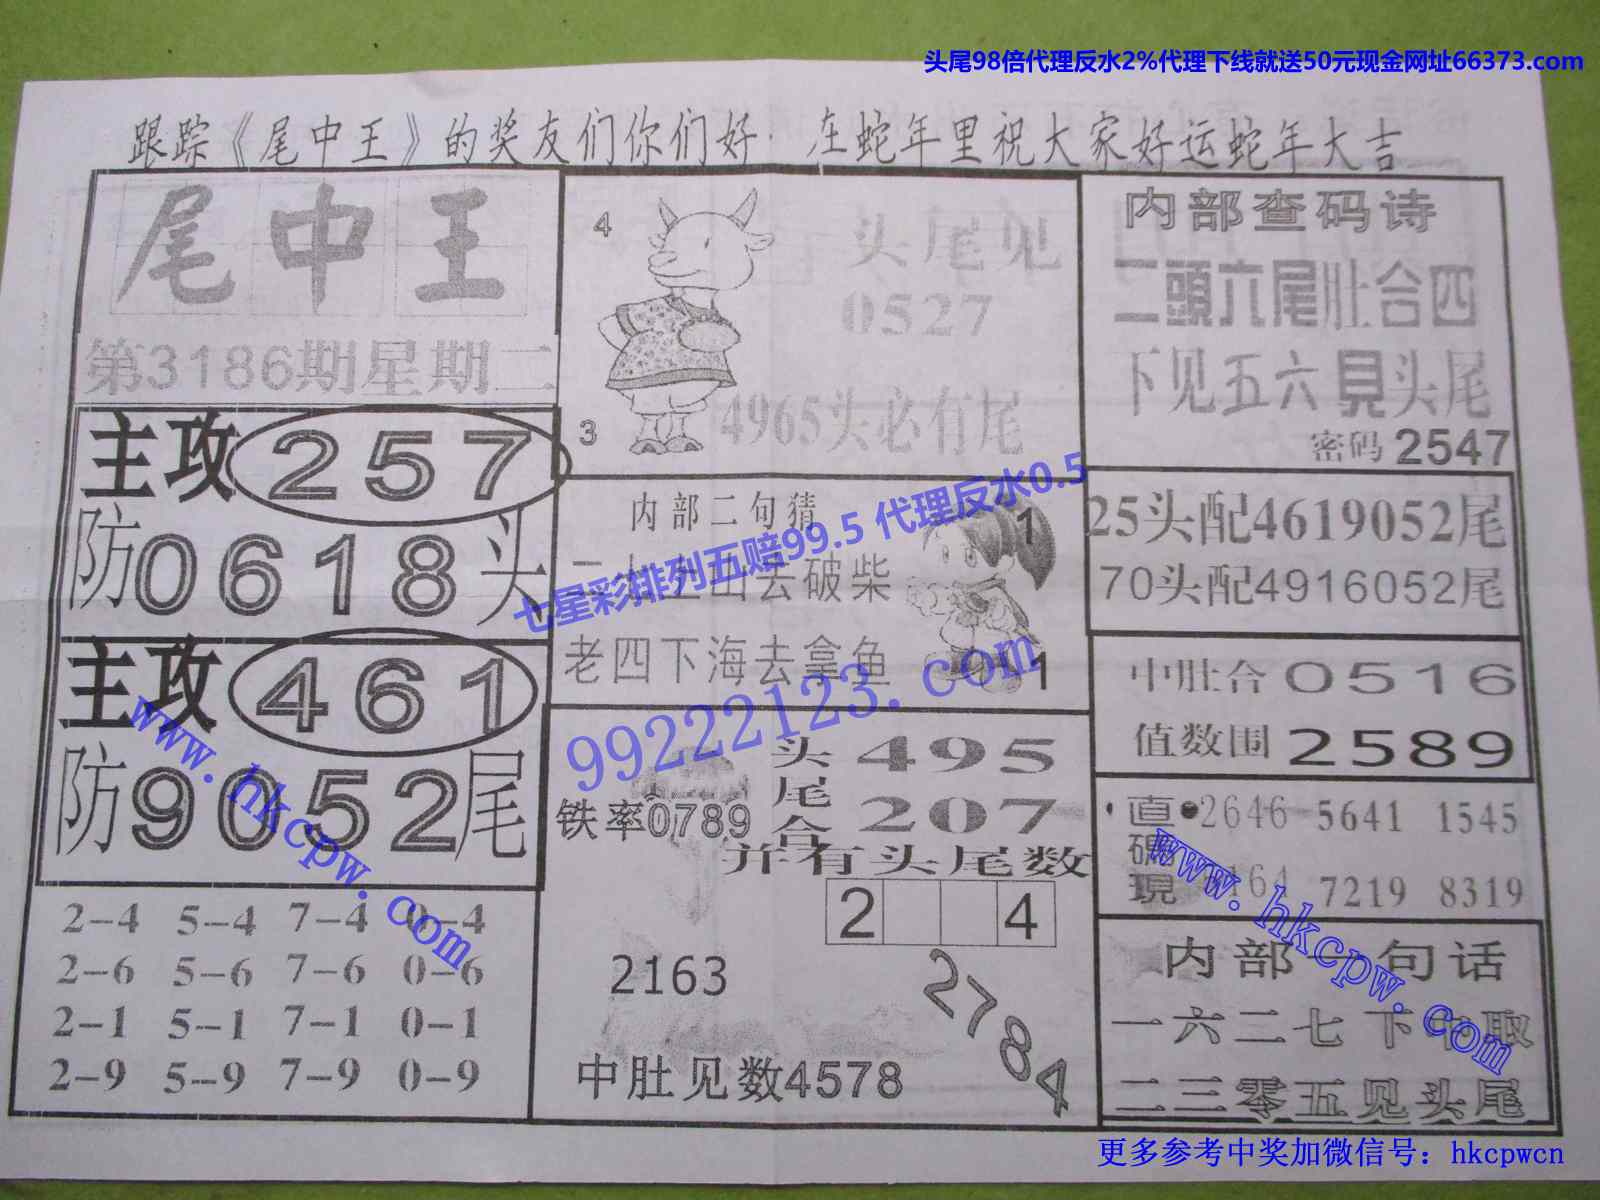 头尾98倍代理反水2%代理下线就送50元现金网址66373.com
跟踪《尾中王》的奖友们你们好·在蛇年里祝大家好运蛇年大吉
尾中王
第3186期星期二
主攻257
防0618头
主攻461
防9052尾
2-4 5-4 7-4 0-4
2-6 5-6 7-6 0-6
2-1 5-1 7-1 0-1
2-9 5-9 7-9 0-9
4
头尾见
0527
3
4965头必有尾
内部二句猜
上山去破柴
老四下海去拿鱼
1
1
1
七星彩排列五赔99.5 代理反水0.5
99222123.com
铁率0789
头尾合
495
207
并有头尾数
2 4
2163
2784
中肚见数4578
内部查码诗
二頭六尾肚合四
下见五六見头尾
密码2547
25头配4619052尾
70头配4916052尾
中肚合0516
值数围2589
直碼現
2646 5641 1545
164 7219 8319
内部一句话
一六二七下中取
二三零五见头尾
www.hkcpw.com
www.hkcpw.com
更多参考中奖加微信号：hkcpwcn